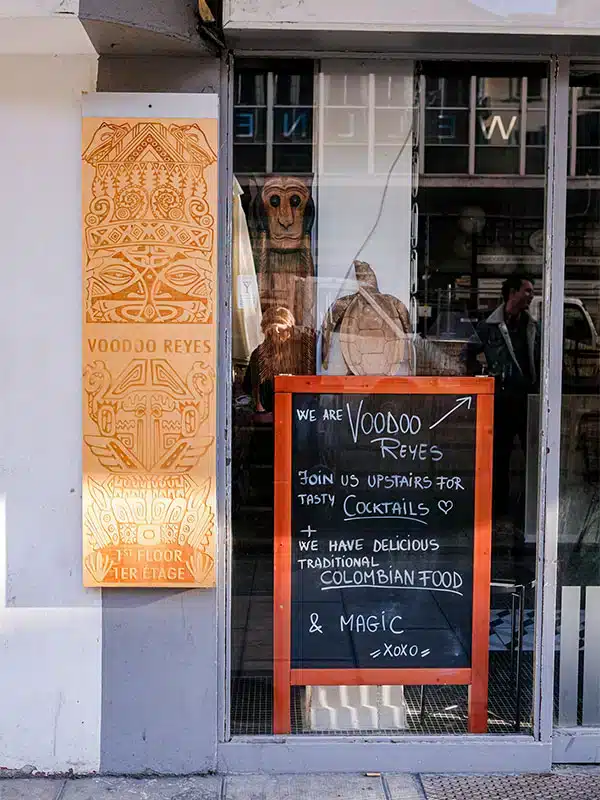 VOODOO REYES
1ST FLOOR
1ER ÉTAGE
WELLNE
WE ARE VOODOO
REYES
JOIN US UPSTAIRS FOR
TASTY COCKTAILS ♡
+
WE HAVE DELICIOUS
TRADITIONAL
COLOMBIAN FOOD
& MAGIC
=XOXO=